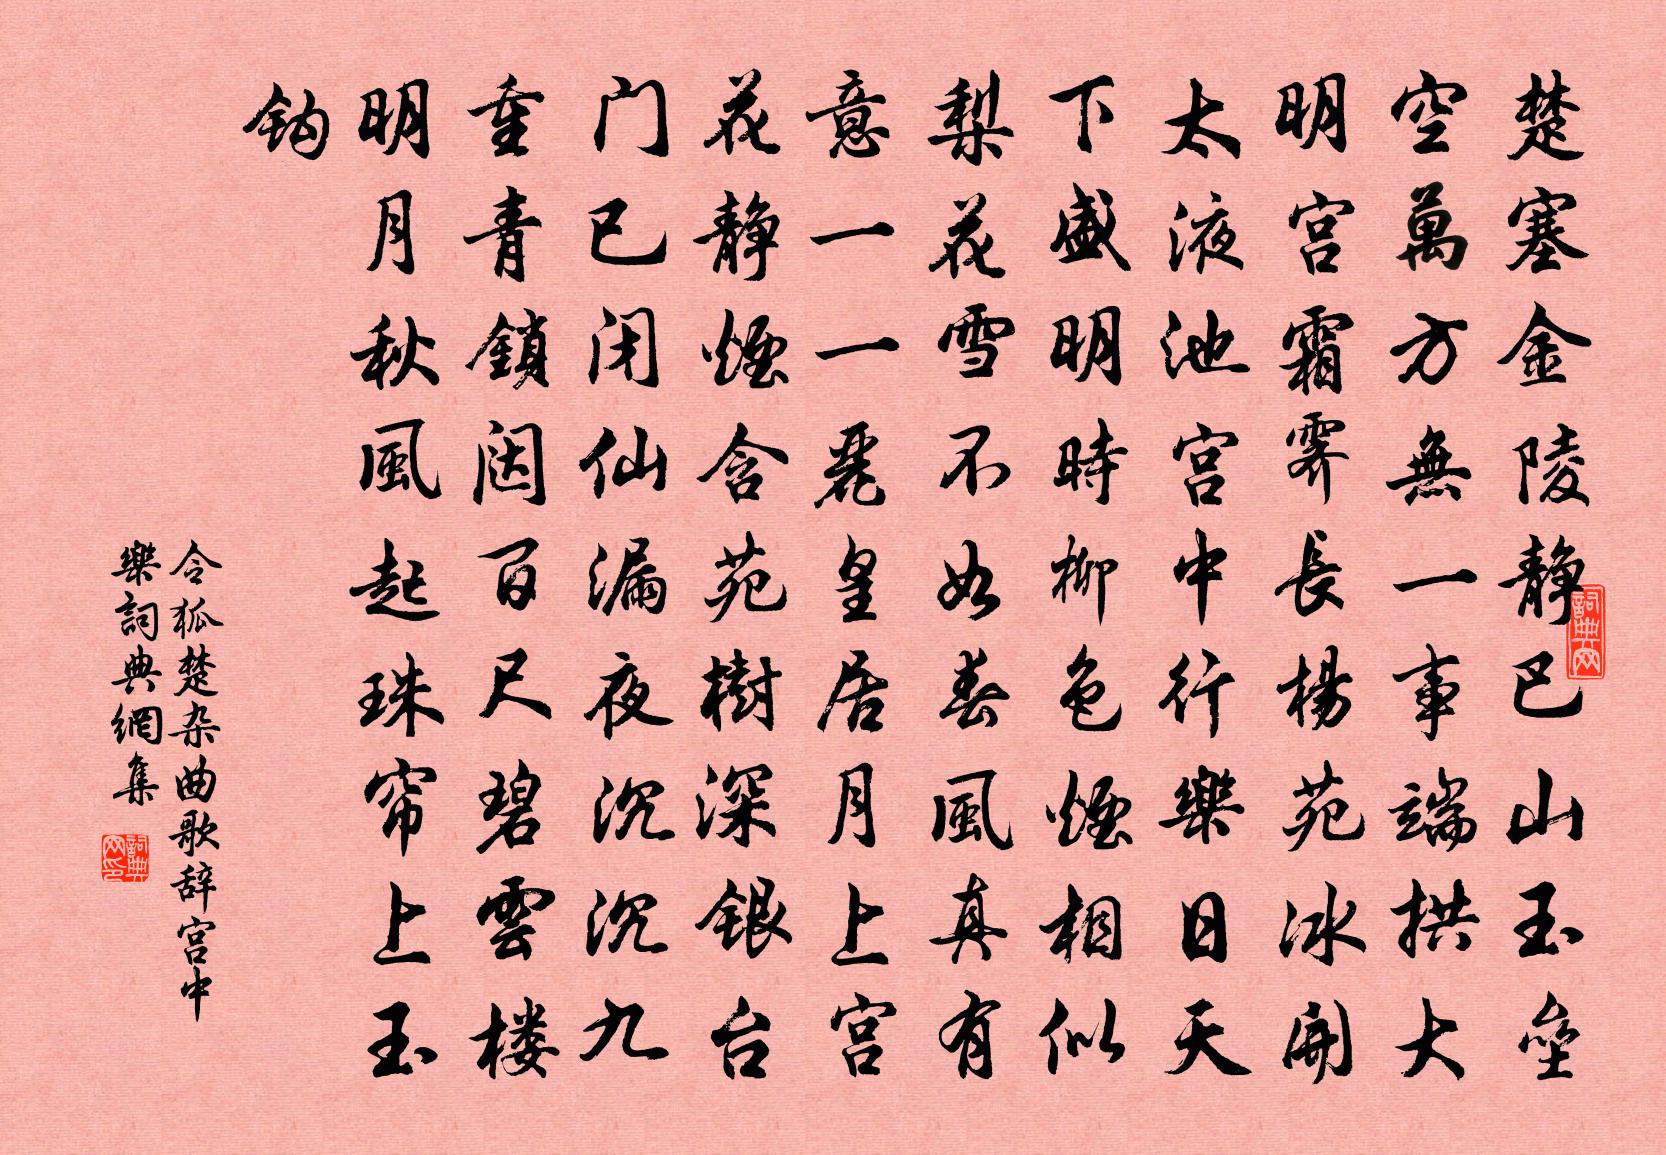 楚塞金陵静巴山玉垒
空萬方無一事端拱大
明宫霜霁長楊苑冰開
太液池宫中行樂日天
下盛明時柳色煙相似
梨花雪不如春風真有
意一一麗皇居月上宫
花静煙含苑樹深銀台
门已闭仙漏夜沉沉九
重青鎖闼百尺碧雲楼
明月秋風起珠帘上玉
钩
令狐楚杂曲歌辞宫中
樂詞典網集
詞典网
詞典网印